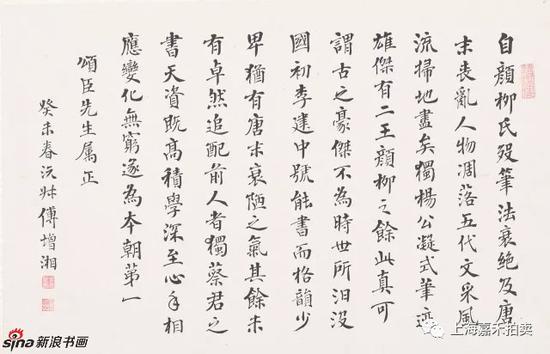 自顏柳氏歿筆法衰絕及唐
末喪亂人物凋落五代文采風
流掃地盡矣獨楊公凝式筆迹
雄傑有二王顏柳之餘此真可
謂古之豪傑不為時世所汨沒
國初李建中號能書而格韻少
卑猶有唐末衰陋之氣其餘未
有卓然追配前人者獨蔡君之
書天資既高積學深至心手相
應變化無窮遂為本朝第一
頌臣先生属正
癸未春沅叔傅增湘
sina 新浪书画
上海嘉禾拍卖